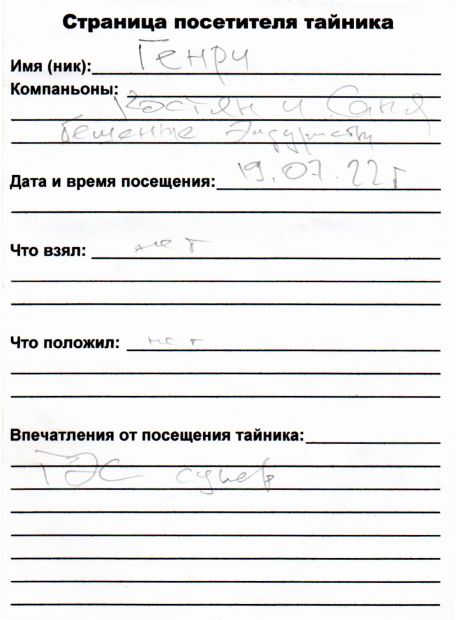 Страница посетителя тайника
Имя (ник): Генри
Компаньоны:
Костян и Саня
бешеные Эндуристы
Дата и время посещения: 19.07.22г
Что взял: нет
Что положил: нет
Впечатления от посещения тайника:
ГЭС супер